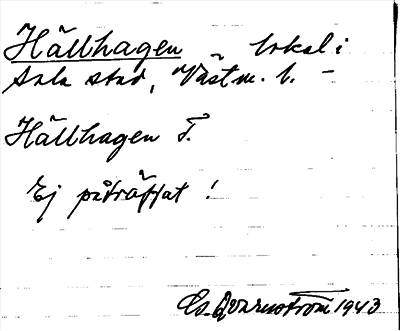 Hällhagen lokal i
Sala stad, Västm. l. –
Hällhagen T.
Ej påträffat !
Cs. Qvarnström 1943